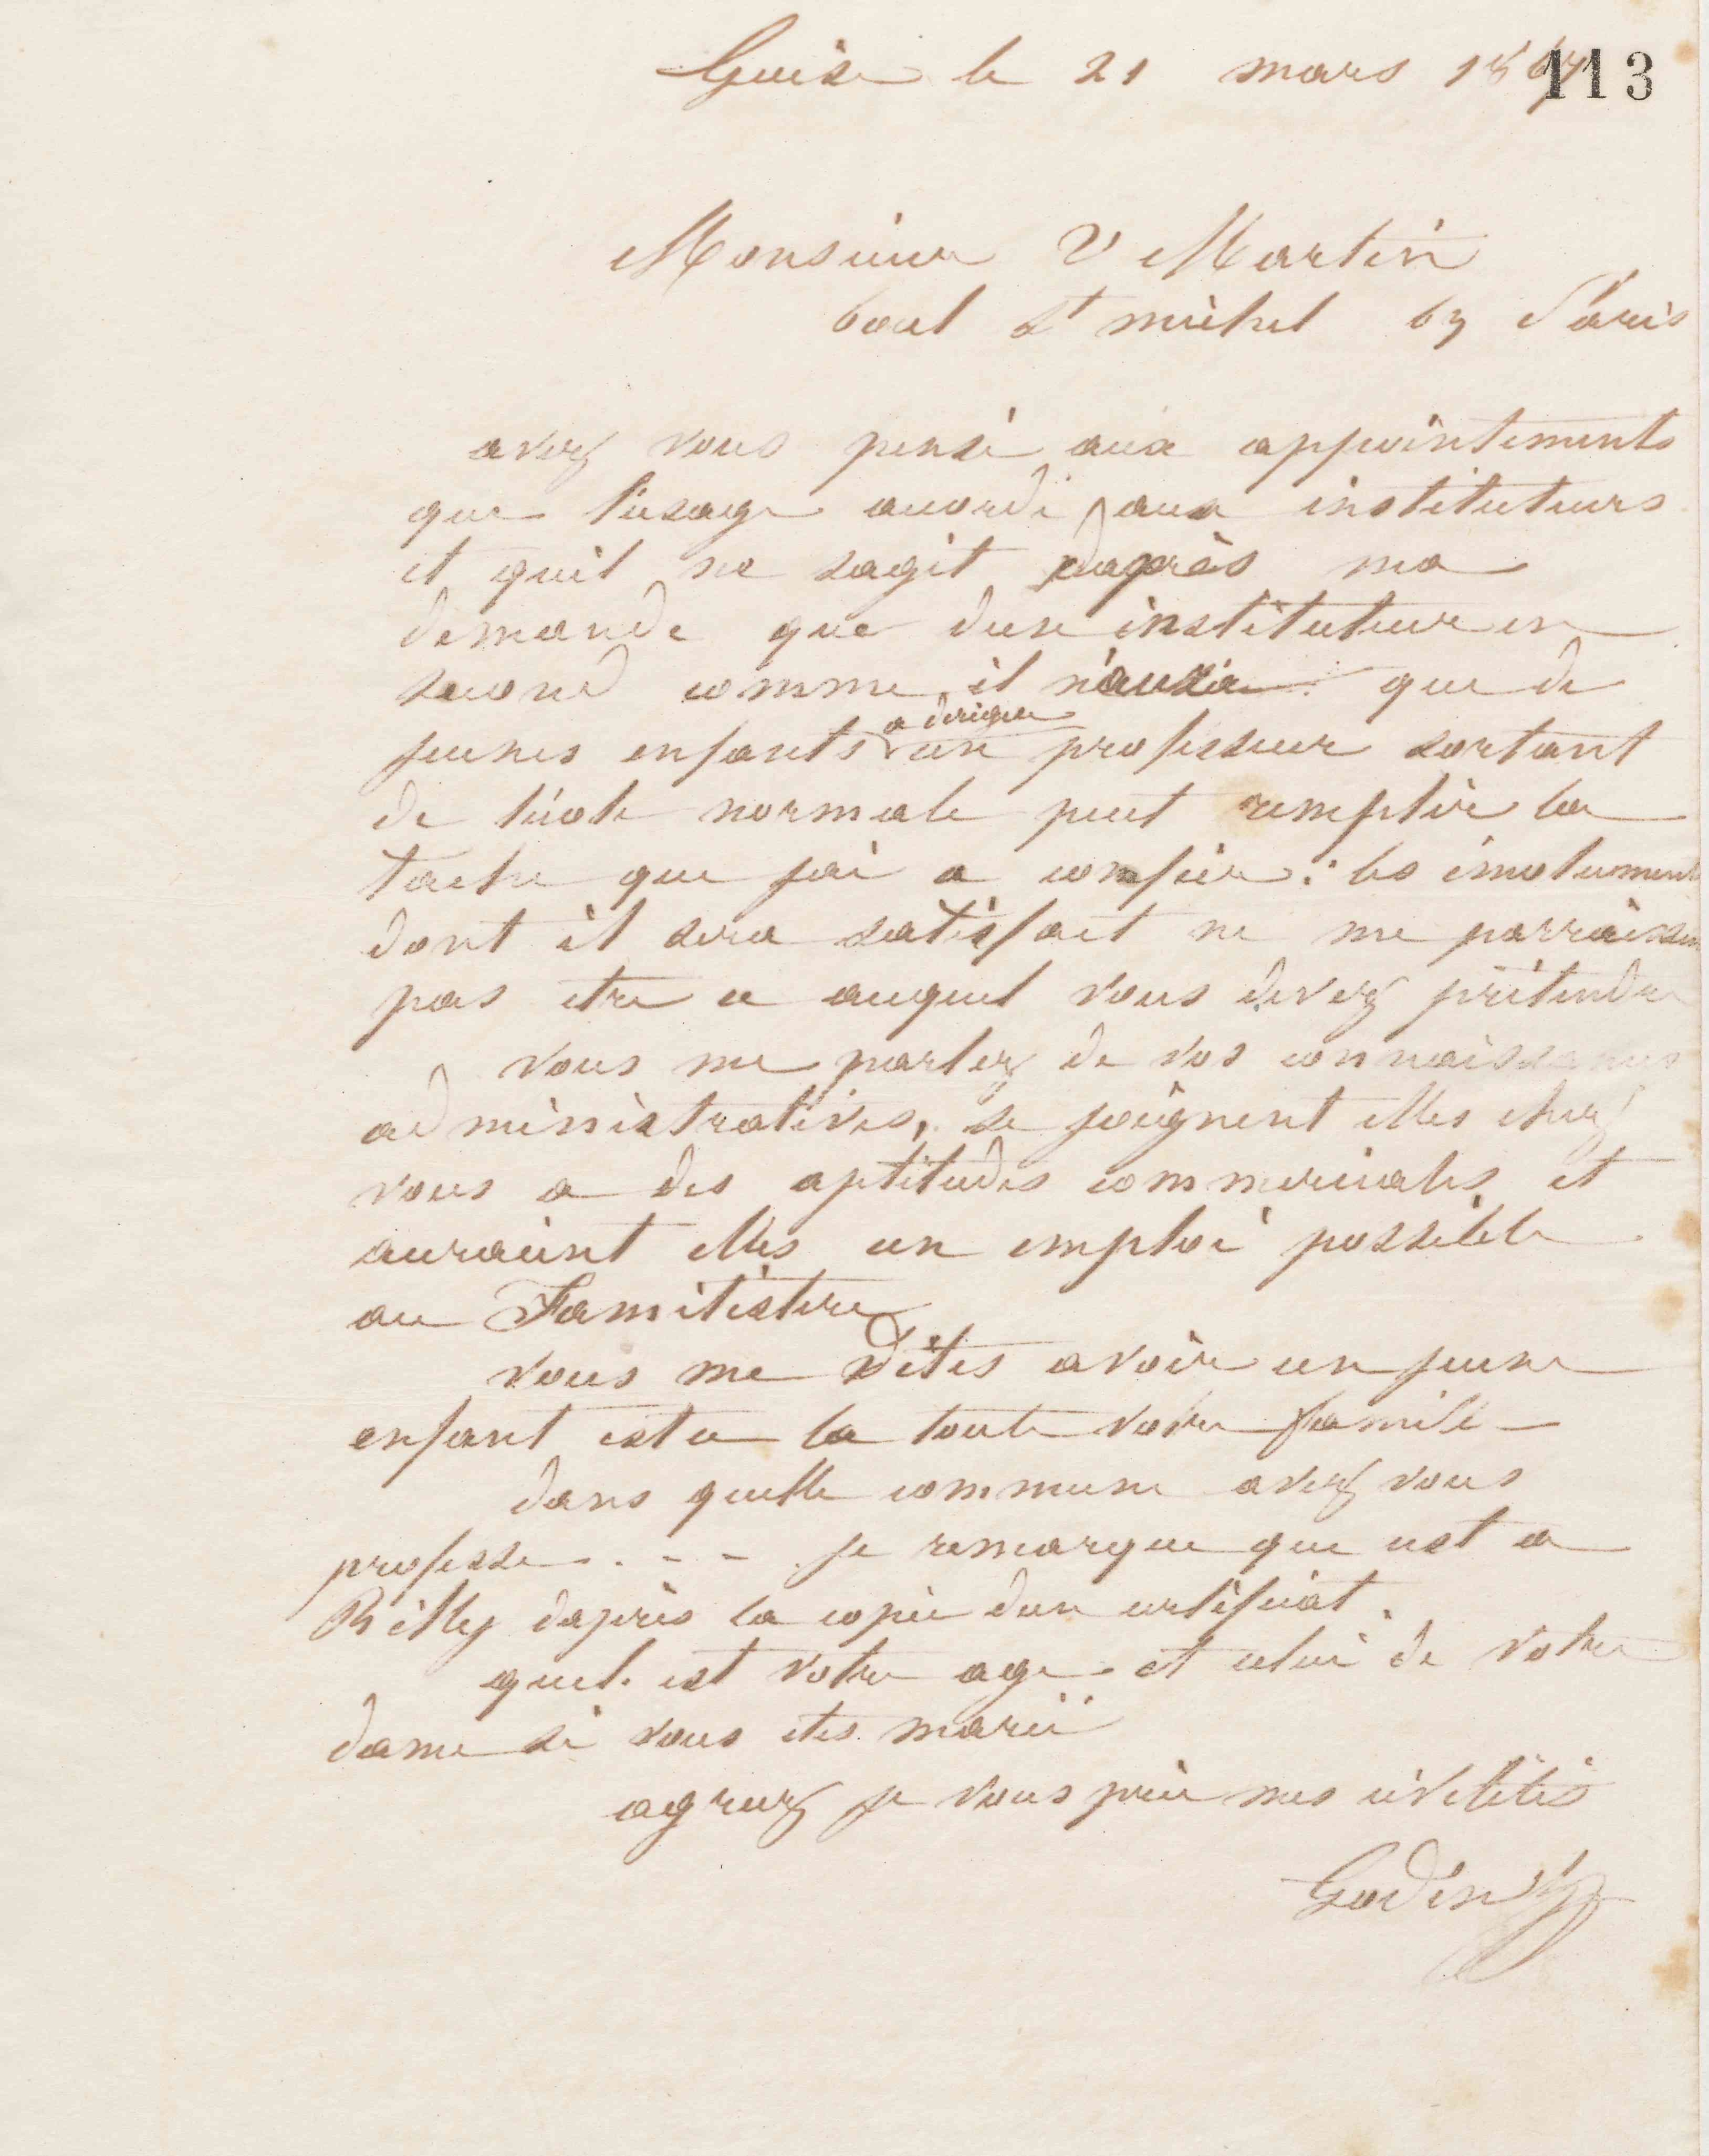 Guise le 21 mars 186
113
Monsieur V Martin
boul St michel 63 Paris
avez vous pensé aux appointements
que l'usage accorde aux instituteurs
et quil ne sagit daprès ma
demande que dun instituteur en
second comme il n'aura que de
a diriger
jeunes enfants un professeur sortant
de l'école normale peut remplir la
tache que jai a confier : les émoluments
dont il sera satisfait ne me parraissent
pas etre ce auquel vous devez prétendre
vous me parlez de vos connaissances
administratives, se joignent elles chez
vous a des aptitudes commerciales et
auraient elles un emploi possible
au Familistère
vous me dites avoir un jeune
enfant est ce la toute votre famille
dans quelle commune avez vous
professe . - - je remarque que cest a
Rilly daprès la copie dun certificat.
quel est votre age et celui de votre
dame si vous etes marié
agreez je vous prie mes civilités
Godin